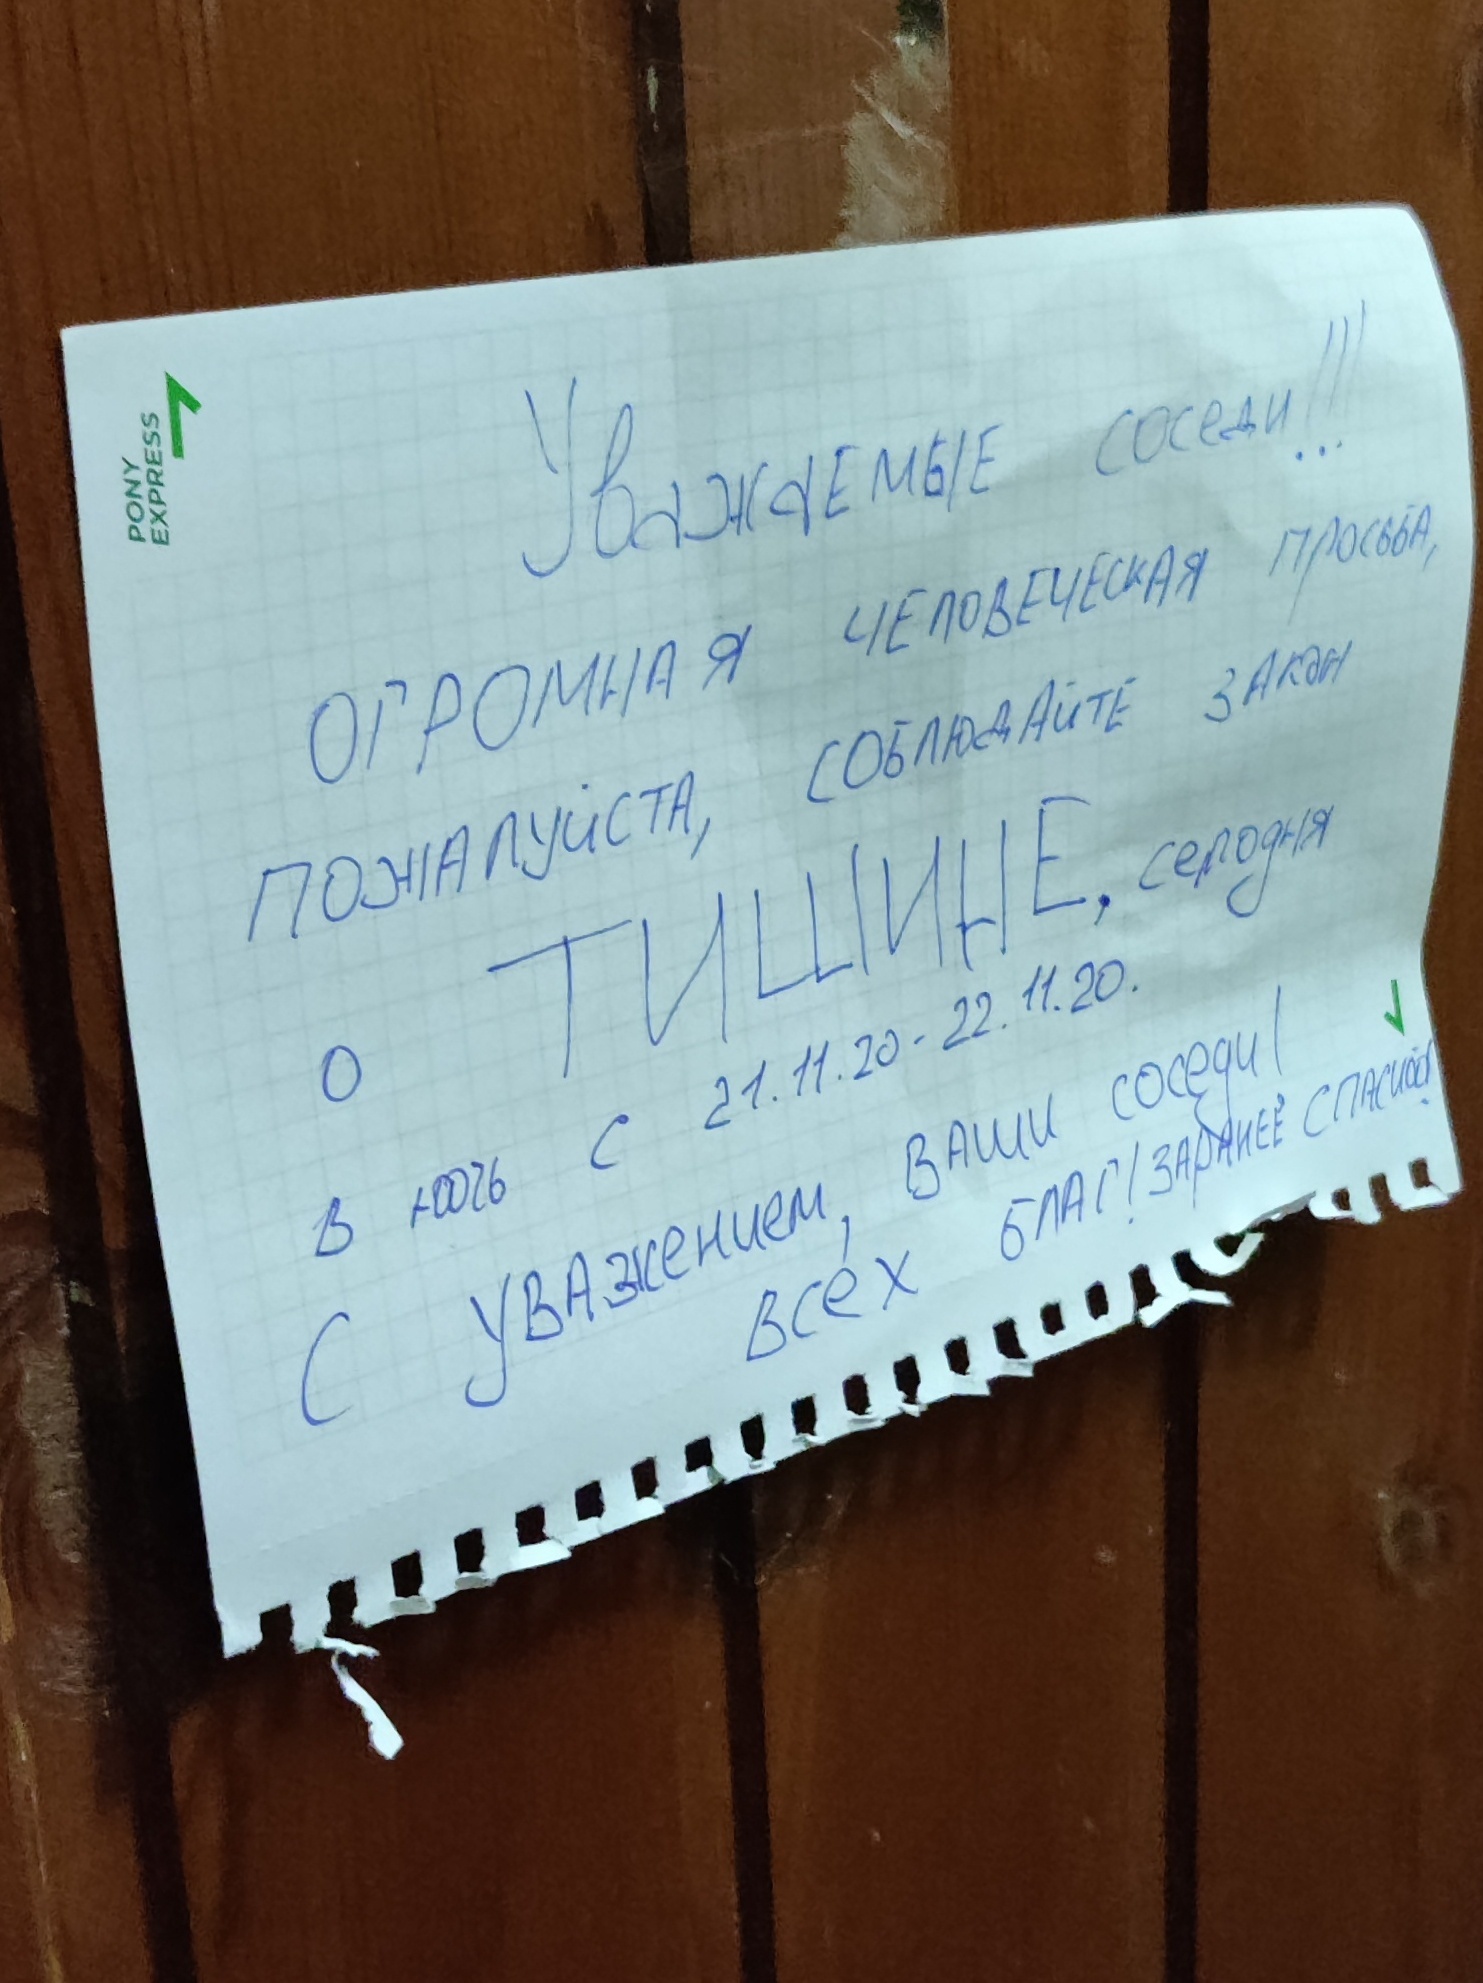 PONY
EXPRESS
Уважаемые соседи!!!
ОГРОМНАЯ ЧЕЛОВЕЧЕСКАЯ ПРОСЬБА,
ПОЖАЛУЙСТА, СОБЛЮДАЙТЕ ЗАКОН
О ТИШИНЕ, сегодня
в ночь с 21.11.20 - 22.11.20.
С УВАЖЕНИЕМ, ВАШИ соседи!
всех БЛАГ! ЗАРАНЕЕ СПАСИБО!